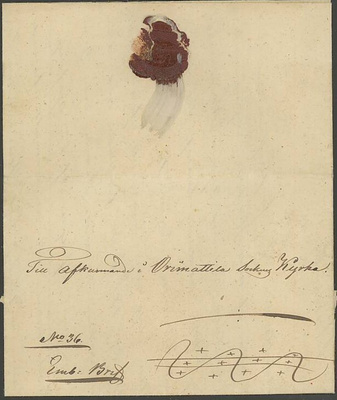 Till afkunnande i Orimattila Sockens Kyrka.
No 36.
Emb: Bref